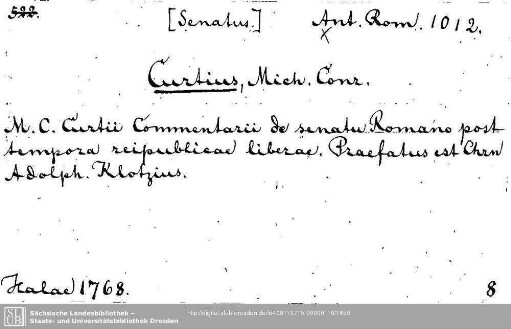 522.
[Senatus]
Ant. Rom. 1012.
x
Curtius, Mich. Conr.
M. C. Curtii Commentarii de senatu Romano post
tempora reipublicae liberae. Praefatus est Chrn
Adolph. Klotzius.
Halae 1768.
8
SLUB
Sächsische Landesbibliothek –
Staats- und Universitätsbibliothek Dresden